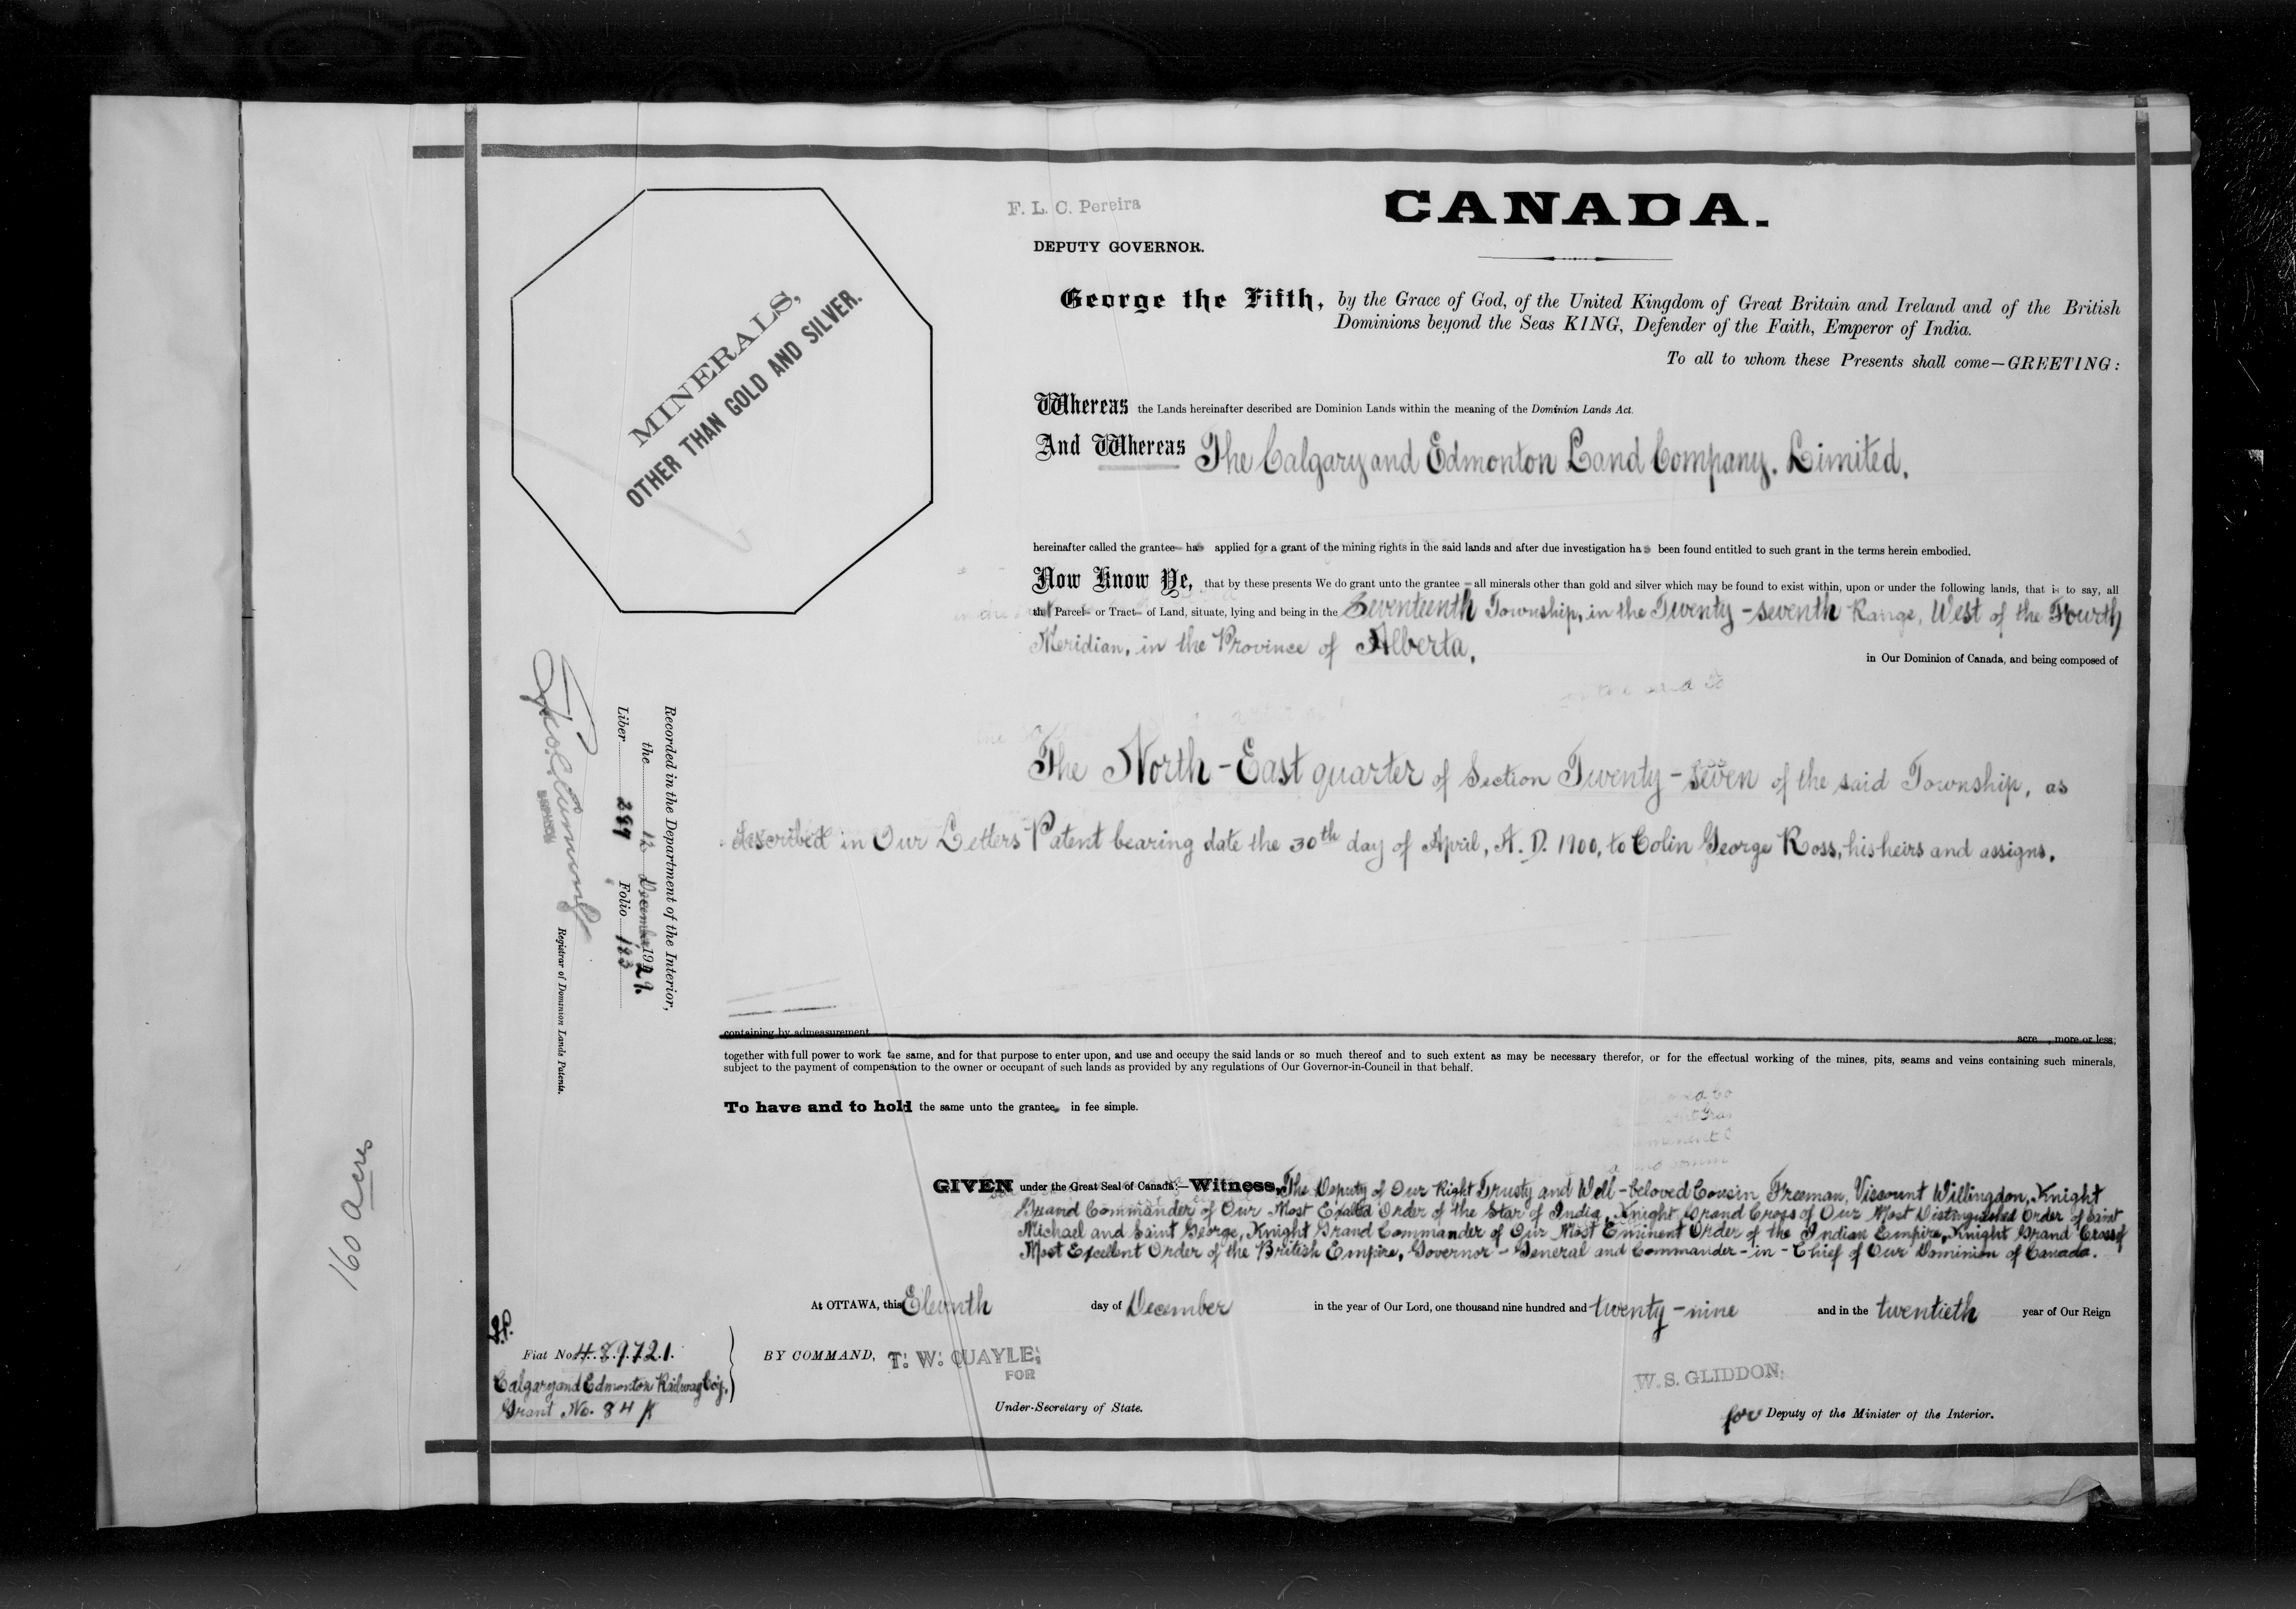 F. L. C. Pereira
DEPUTY GOVERNOR.
CANADA.
MINERALS,
OTHER THAN GOLD AND SILVER.
George the Fifth, by the Grace of God, of the United Kingdom of Great Britain and Ireland and of the British
Dominions beyond the Seas KING, Defender of the Faith, Emperor of India.
To all to whom these Presents shall come—GREETING:
Whereas the Lands hereinafter described are Dominion Lands within the meaning of the Dominion Lands Act.
And Whereas The Calgary and Edmonton Land Company, Limited,
hereinafter called the grantee has applied for a grant of the mining rights in the said lands and after due investigation has been found entitled to such grant in the terms herein embodied.
Now Know Ye, that by these presents We do grant unto the grantee — all minerals other than gold and silver which may be found to exist within, upon or under the following lands, that is to say, all
that Parcel or Tract of Land, situate, lying and being in the Seventeenth Township, in the Twenty-seventh Range, West of the Fourth
Meridian, in the Province of Alberta,
in Our Dominion of Canada, and being composed of
The North-East quarter of Section Twenty-seven of the said Township, as
described in Our Letters Patent bearing date the 30th day of April, A. D. 1900, to Colin George Ross, his heirs and assigns.
containing by admeasurement acre , more or less;
together with full power to work the same, and for that purpose to enter upon, and use and occupy the said lands or so much thereof and to such extent as may be necessary therefor, or for the effectual working of the mines, pits, seams and veins containing such minerals,
subject to the payment of compensation to the owner or occupant of such lands as provided by any regulations of Our Governor-in-Council in that behalf.
To have and to hold the same unto the grantee, in fee simple.
GIVEN under the Great Seal of Canada:—Witness, The Deputy of Our Right Trusty and Well-beloved Cousin, Freeman, Viscount Willingdon, Knight
Grand Commander of Our Most Exalted Order of the Star of India, Knight Grand Cross of Our Most Distinguished Order of Saint
Michael and Saint George, Knight Grand Commander of Our Most Eminent Order of the Indian Empire, Knight Grand Cross of
Most Excellent Order of the British Empire, Governor-General and Commander-in-Chief of Our Dominion of Canada.
At OTTAWA, this Eleventh day of December in the year of Our Lord, one thousand nine hundred and twenty-nine and in the twentieth year of Our Reign
BY COMMAND, T. W. QUAYLE,
FOR
Under-Secretary of State.
W. S. GLIDDON,
for Deputy of the Minister of the Interior.
Fiat No. 489721.
Calgary and Edmonton Railway Coy.,
Grant No. 84
Recorded in the Department of the Interior,
the 12 December 1929.
Liber 289 Folio 183
Registrar of Dominion Lands Patents.
160 acres